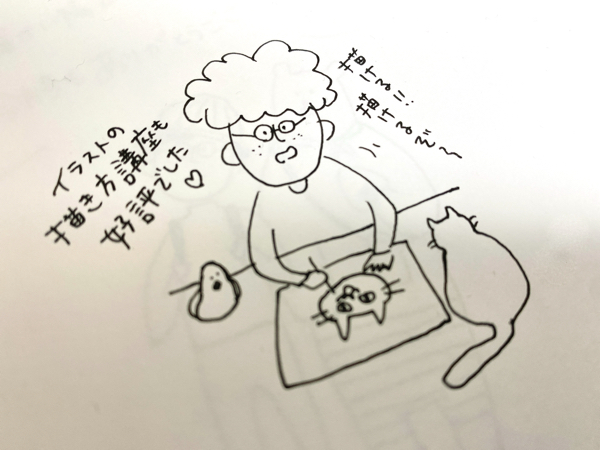 イラストの
描き方講座も
好評でした♡
描けるに!
描けるぞ〜